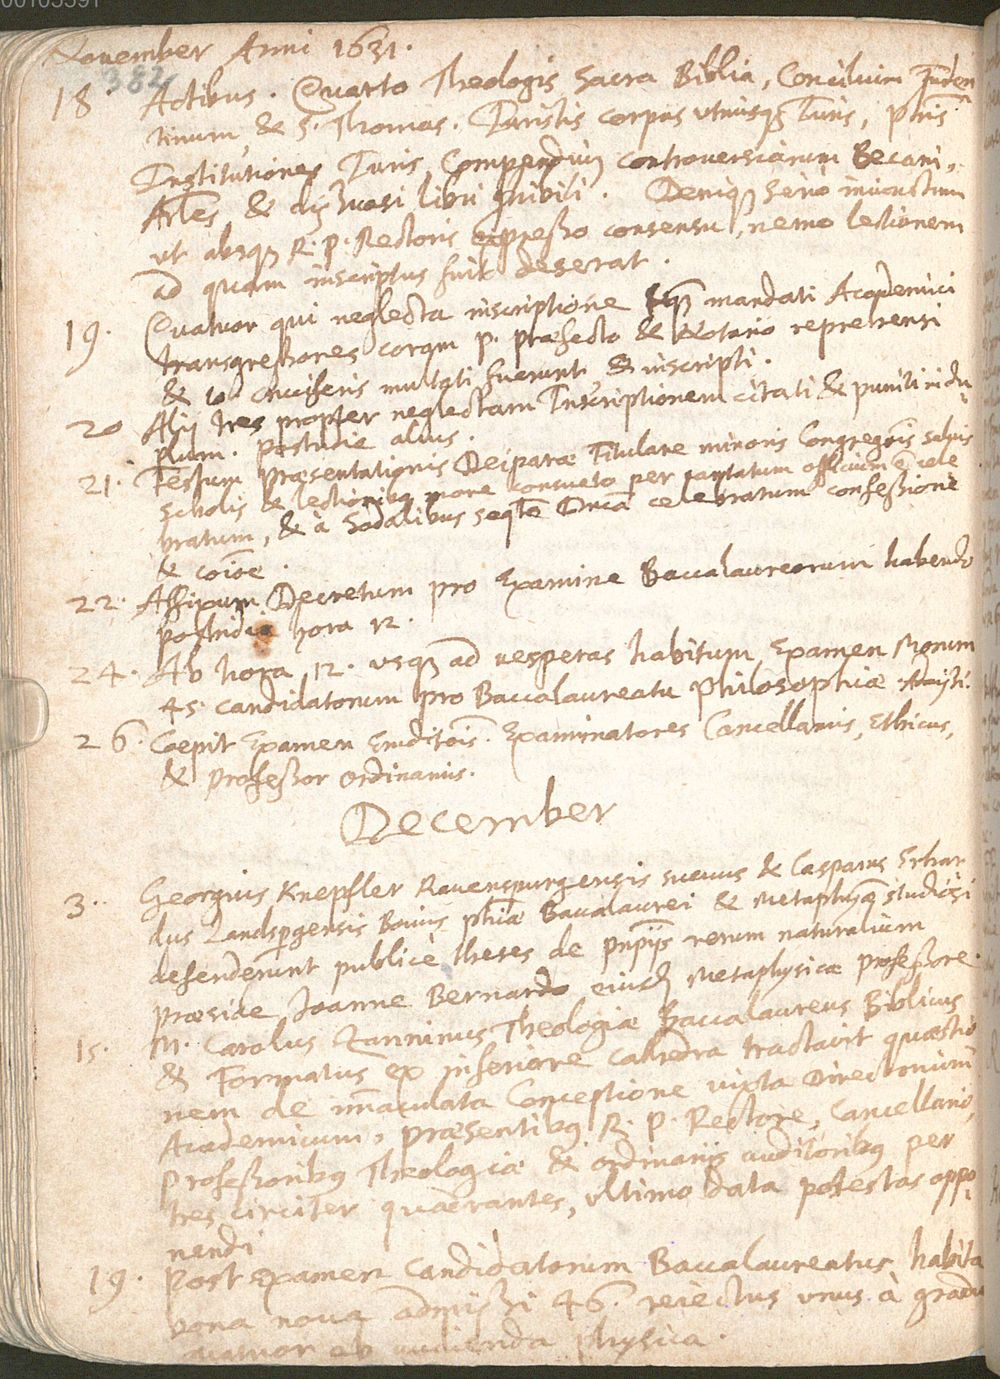 00105591
November Anni 1631.
382
18 Actibus. Quarto Theologis Sacra Biblia, Concilium Triden
tinum, & S. Thomas. Juristis corpus utriusq Juris, Phis
Institutiones Juris, Compendiũ controversiarum Becani,
Artes, & dij quasi libri. Deniq serio iniunctum
ut absq R. P. Rectoris expresso consensu, nemo lectionem
ad quam inscriptus fuit deserat.
19. Quatuor qui neglecta inscriptione mandati Academici
transgressores coram P. Præfecto & Notario reprehensi
& 10 cruciferis mulctati fuerunt & inscripti.
20 Alij tres propter neglectam Inscriptionem citati & puniti in du
plum. Postridie alius.
21. Festum Præsentationis Deiparæ Titulare minoris Congregõis salvis
scholis & lectionibq more consueto per cantatum officium ẽ cele
bratum, & à Sodalibus seqte Dnca celebratum confessione
& coiõe.
22. Affixum Decretum pro Examine Baccalaureorum habendo
postridie hora 12.
24. Ab hora 12. usq ad vesperas habitum Examen Morum
45 candidatorum pro Baccalaureatu Philosophiæ
26. Coepit Examen Eruditõis. Examinatores Cancellarius, Ethicus,
& Professor ordinarius.
December
3. Georgius Knepfler Ravenspurgensis suevus & Casparus Erhar
dus Landspergensis Boius phiæ Baccalaurei & Metaphycæ studiosi
defenderunt publicè theses de pnpijs rerum naturalium
præside Joanne Bernardo eiusd Metaphysicæ professore.
15. M. Carolus Zanninus Theologiæ Baccalaureus Biblicus
& Formatus ex inferiore cathedra tractavit quæstio
nem de imaculata Conceptione iuxta Directorium
Academicum, præsentibq R. P. Rectore, Cancellario,
Professoribq Theologiæ & ordinarijs auditoribq per
tres circiter quadrantes, ultimo data potestas oppo
nendi
19. Post Examen Candidatorum Baccalaureatus habita
bona nova admissi 46. reiectus unus à gradu
quatuor ab audienda physica.